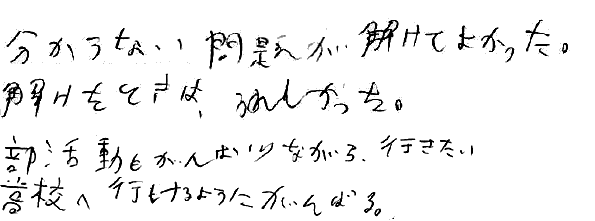 分からない問題が解けてよかった。
解けたときは、うれしかった。
部活動もがんばりながら、行きたい
高校へ行けるようにがんばる。